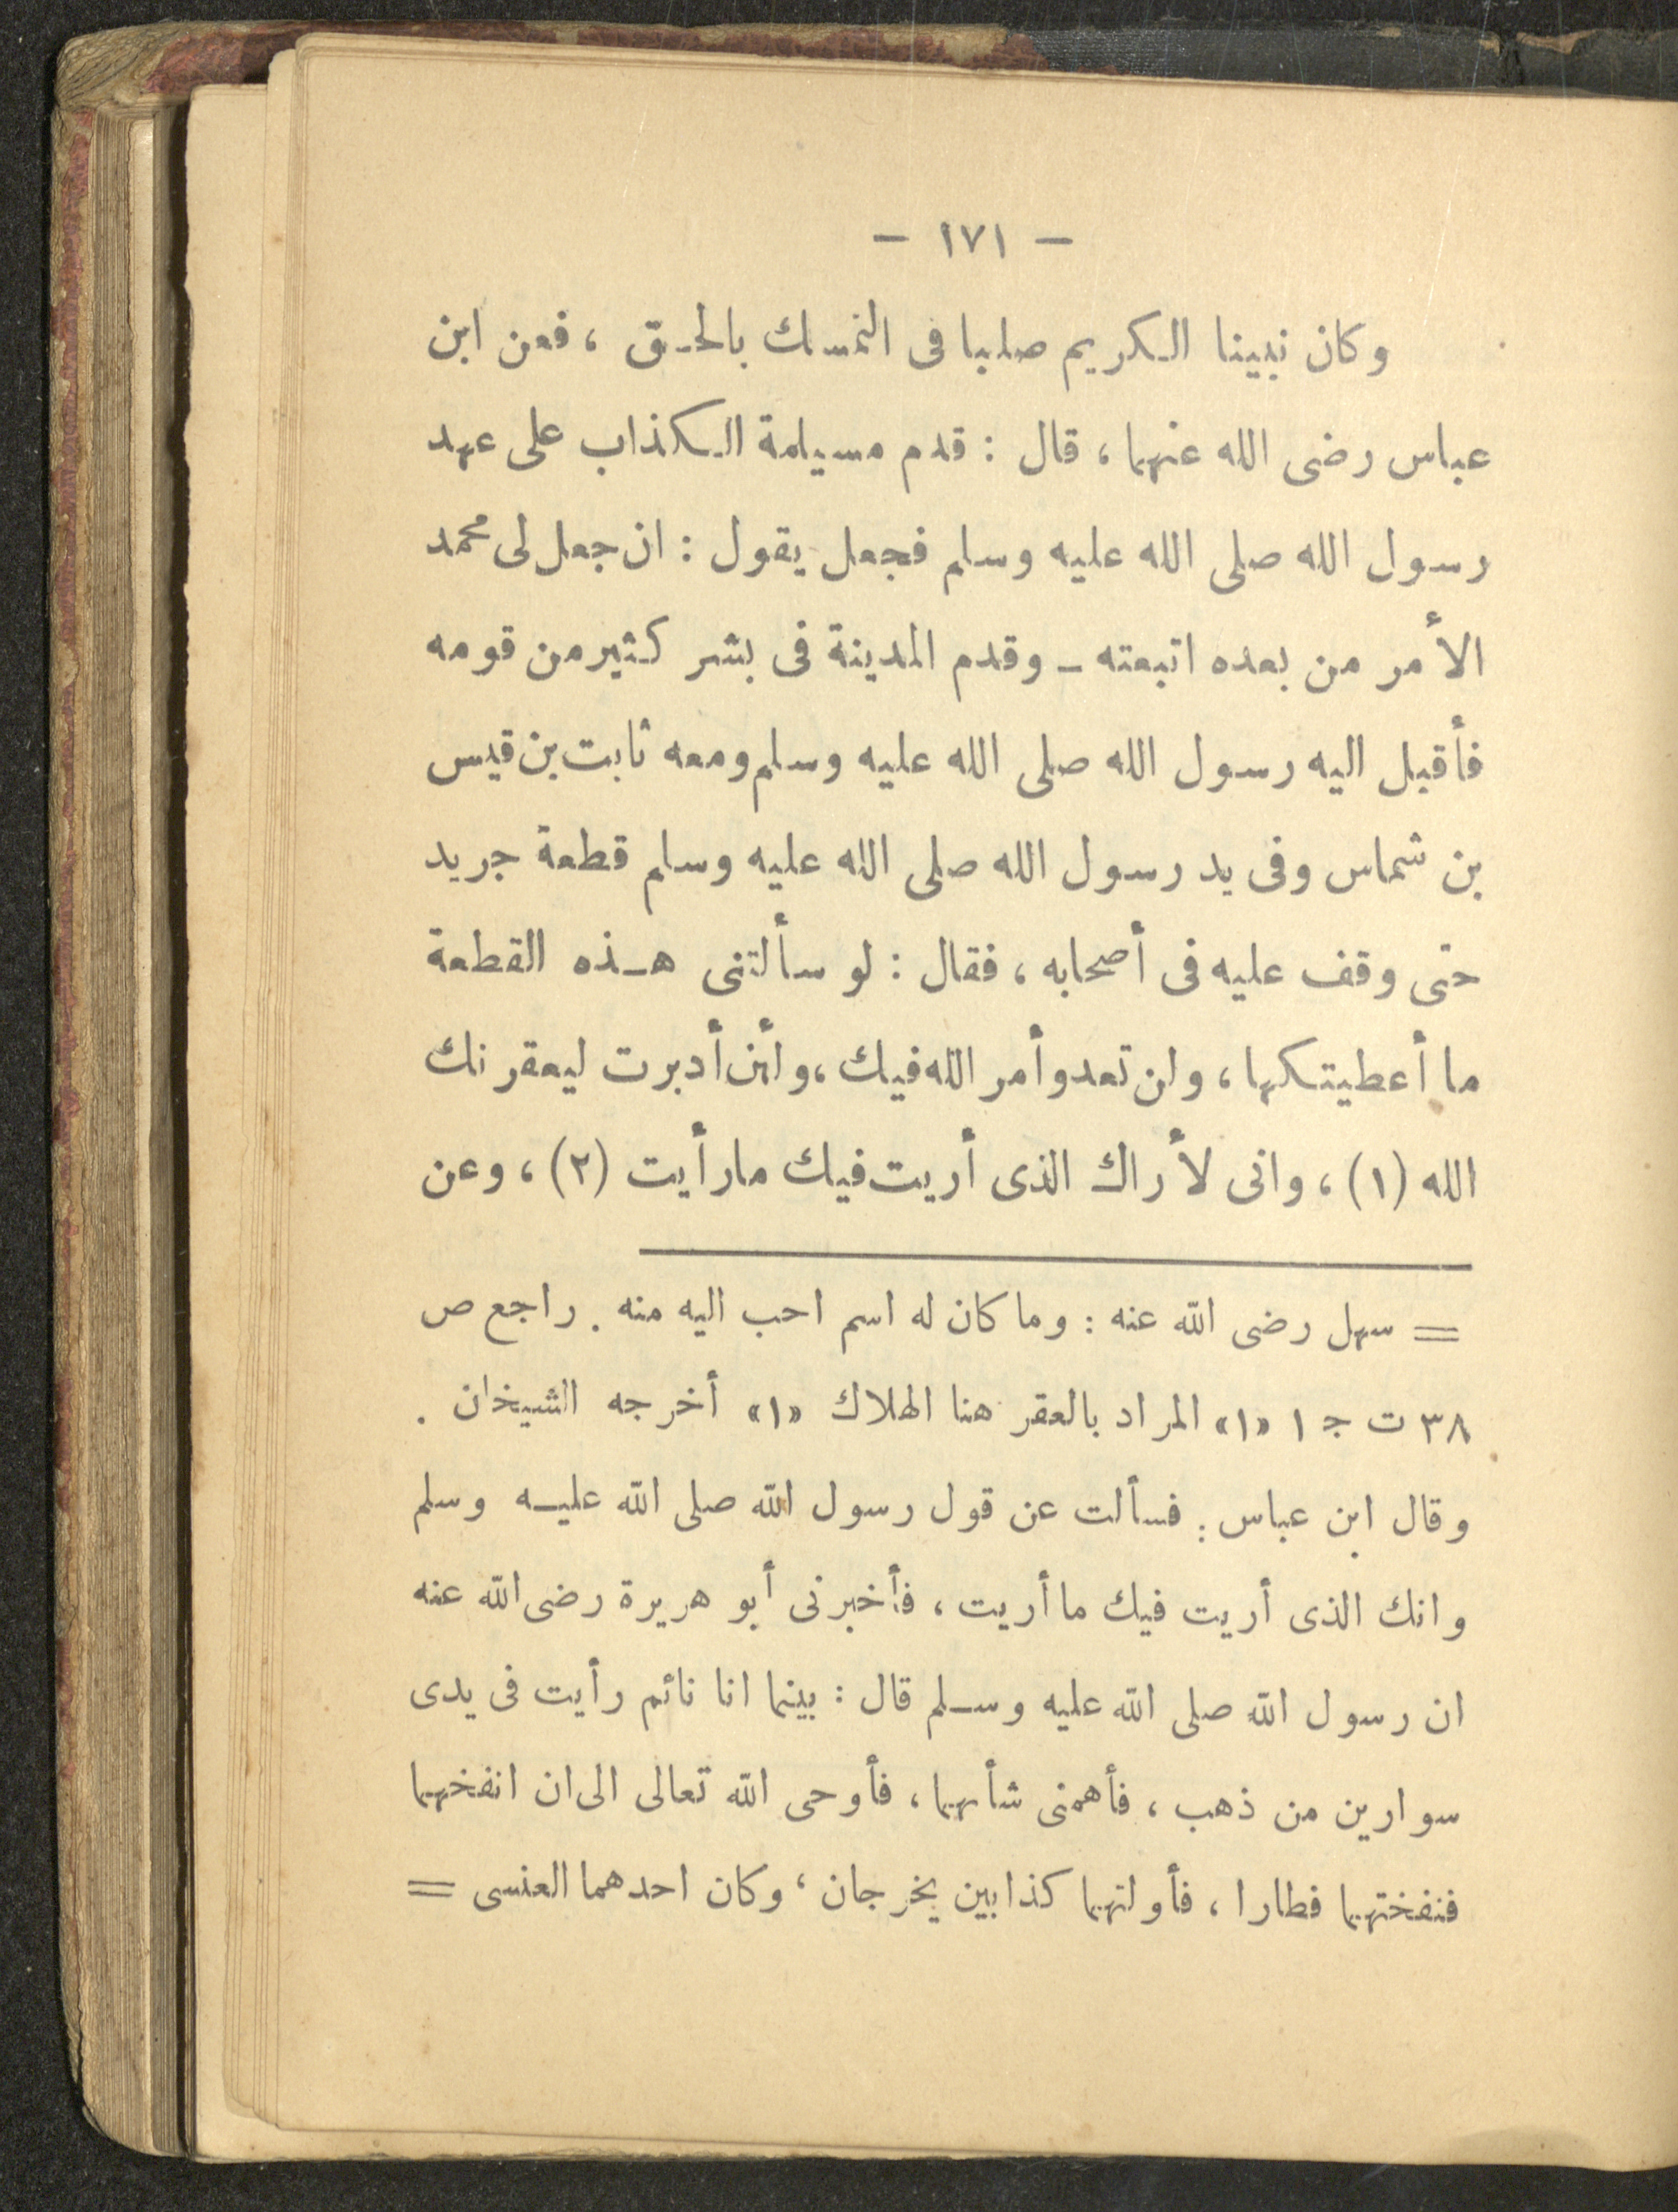 — ١٧١ —
وكان نبينا الكريم صلبا فى التمسك بالحق ، فعن ابن
عباس رضى الله عنهما ، قال : قدم مسيلمة الكذاب على عهد
رسول الله صلى الله عليه وسلم فجعل يقول : ان جعل لى محمد
الأمر من بعده اتبعته ـ وقدم المدينة فى بشر كثير من قومه
فأقبل اليه رسول الله صلى الله عليه وسلم ومعه ثابت بن قيس
بن شماس وفى يد رسول الله صلى الله عليه وسلم قطعة جريد
حتى وقف عليه فى أصحابه ، فقال : لو سألتنى هذه القطعة
ما أعطيتكها ، ولن تعدو أمر الله فيك ، ولئن أدبرت ليعقرنك
الله (١) ، وانى لأراك الذى أريت فيك ما رأيت (٢) ، وعن
= سهل رضى الله عنه : وما كان له اسم احب اليه منه . راجع ص
٣٨ ت ج ١ «١» المراد بالعقر هنا الهلاك «١» أخرجه الشيخان .
وقال ابن عباس : فسألت عن قول رسول الله صلى الله عليه وسلم
وانك الذى أريت فيك ما أريت ، فأخبرنى أبو هريرة رضى الله عنه
ان رسول الله صلى الله عليه وسلم قال : بينما انا نائم رأيت فى يدى
سوارين من ذهب ، فأهمنى شأنهما ، فأوحى الله تعالى الى ان انفخهما
فنفختهما فطارا ، فأولتهما كذابين يخرجان ، وكان احدهما العنسى =